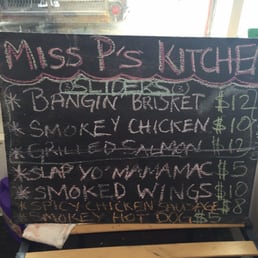 MISS P'S KITCHE
SLIDERS
* BANGIN' BRISKET $12
* SMOKEY CHICKEN $10
* GRILLED SALMON $12
* SLAP YO' MAMA MAC $5
* SMOKED WINGS $10
* SPICY CHICKEN SAUSAGE $8
* SMOKEY HOT DOG $5